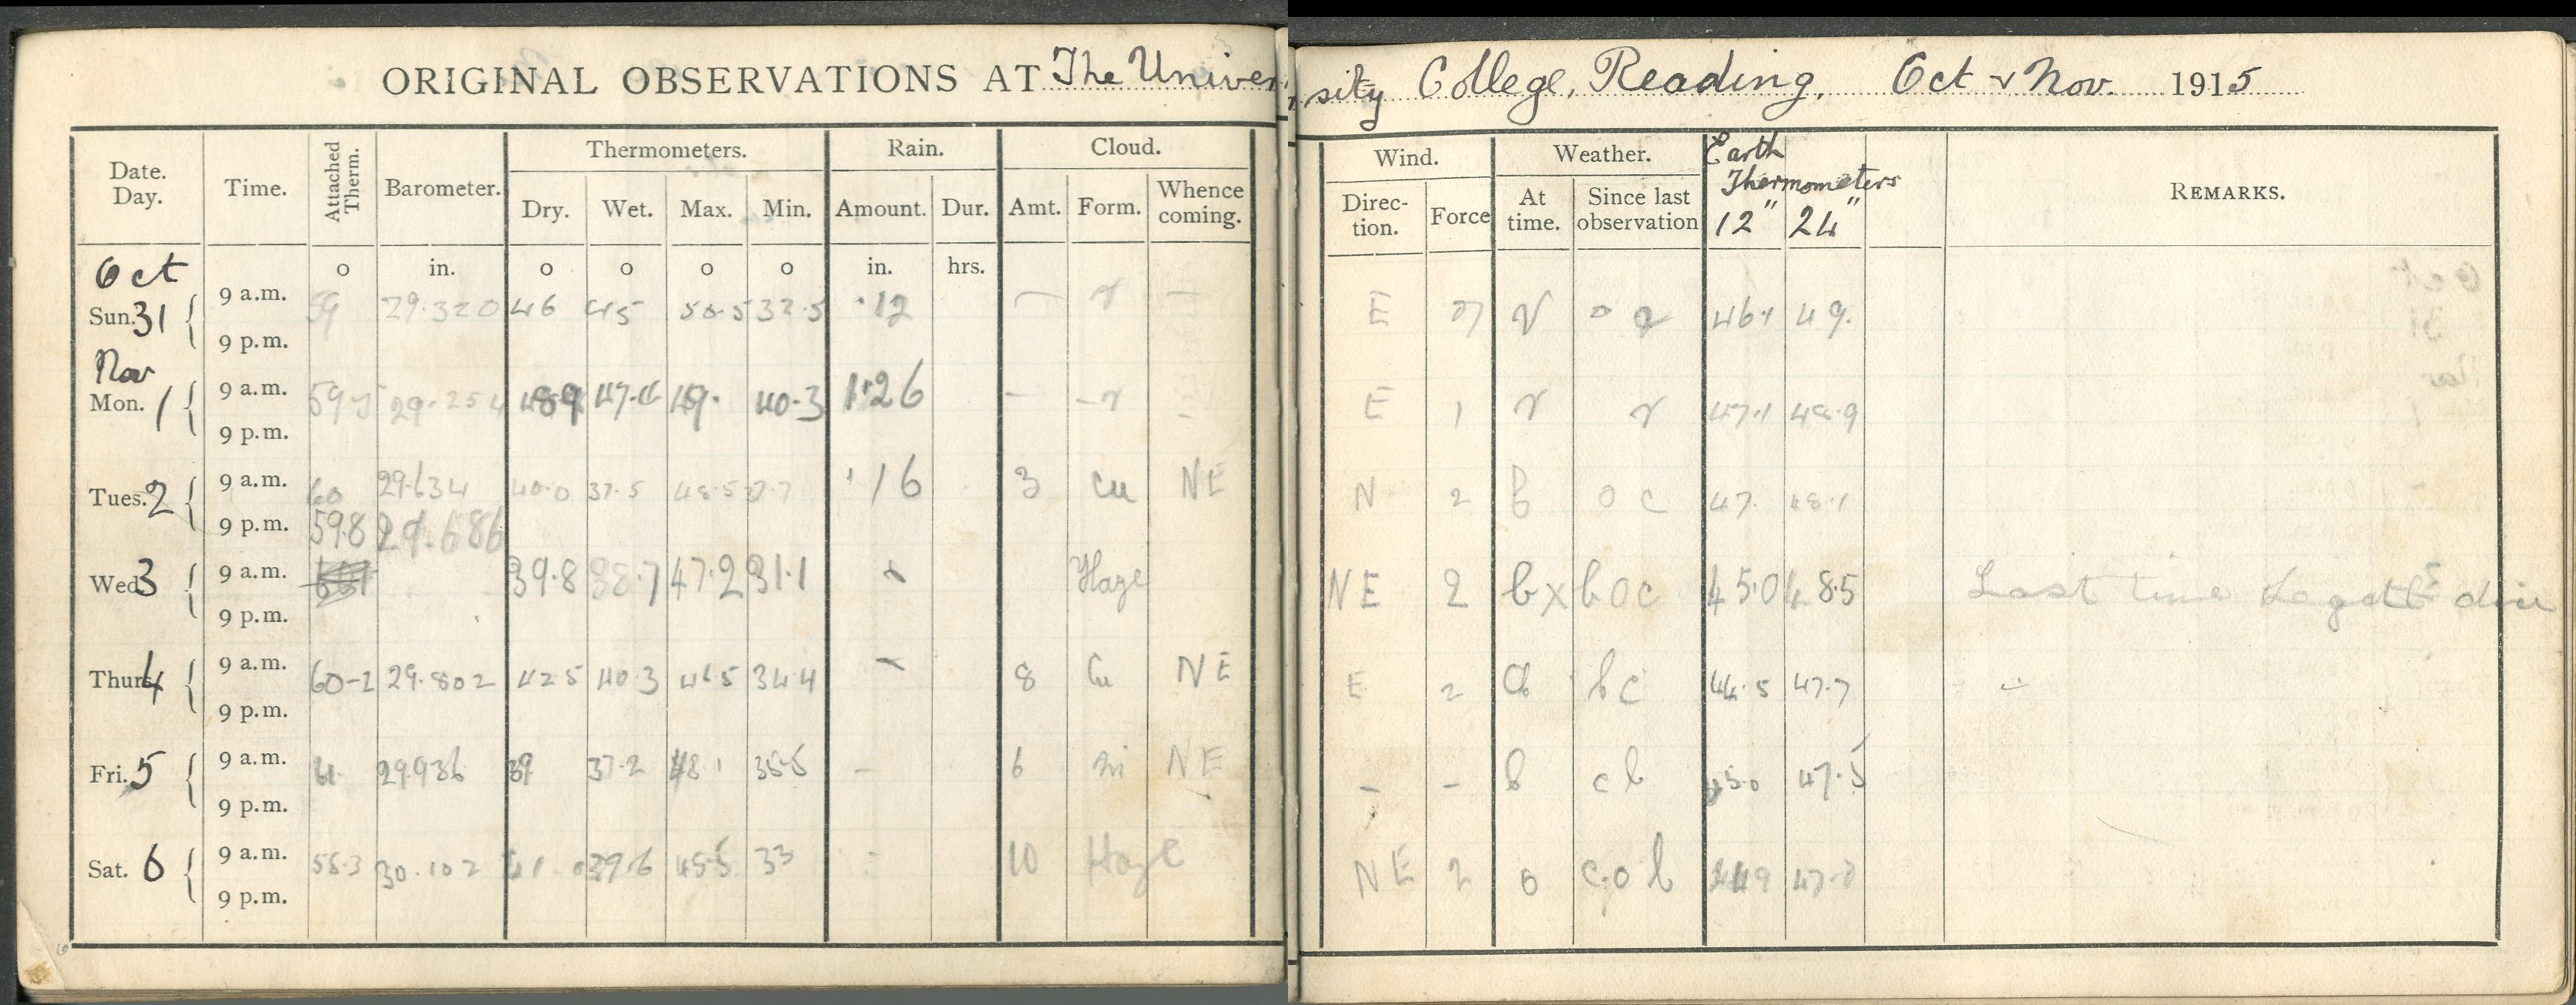 ORIGINAL OBSERVATIONS AT The University College, Reading. Oct & Nov. 1915
Date. Day. Time. Attached Therm. Barometer. Thermometers. Rain. Cloud. Wind. Weather. Earth Thermometers REMARKS.
Dry. Wet. Max. Min. Amount. Dur. Amt. Form. Whence coming. Direction. Force At time. Since last observation 12" 24"
Oct o in. o o o o in. hrs.
Sun. 31 9 a.m. 59 29.320 46 45 50.5 32.5 .12 — r — E r 46.1 49.
9 p.m.
Nov
Mon. 1 9 a.m. 29.254 48.9 49. 40.3 1.26 — — r — E 1 r r 47.1 48.9
9 p.m.
Tues. 2 9 a.m. 60 29.634 40.0 37.5 48.5 37.7 .16 3 Cu NE N 2 b o c 47. 48.1
9 p.m. 59.8 29.686
Wed. 3 9 a.m. 39.8 38.7 47.2 31.1 - Haze NE 2 b x b o c 45.0 48.5 Last time
9 p.m.
Thurs. 4 9 a.m. 60-2 29.802 42.5 40.3 46.5 34.4 - 8 Cu NE E 2 b c 44.5 47.7
9 p.m.
Fri. 5 9 a.m. 61. 29.936 39 37.2 48.1 35.5 — 6 ni NE — — b c b 45.0 47.5
9 p.m.
Sat. 6 9 a.m. 58.3 30.102 41.0 39.6 45.5 33 - 10 Haze NE 2 o c.o b 44.9
9 p.m.